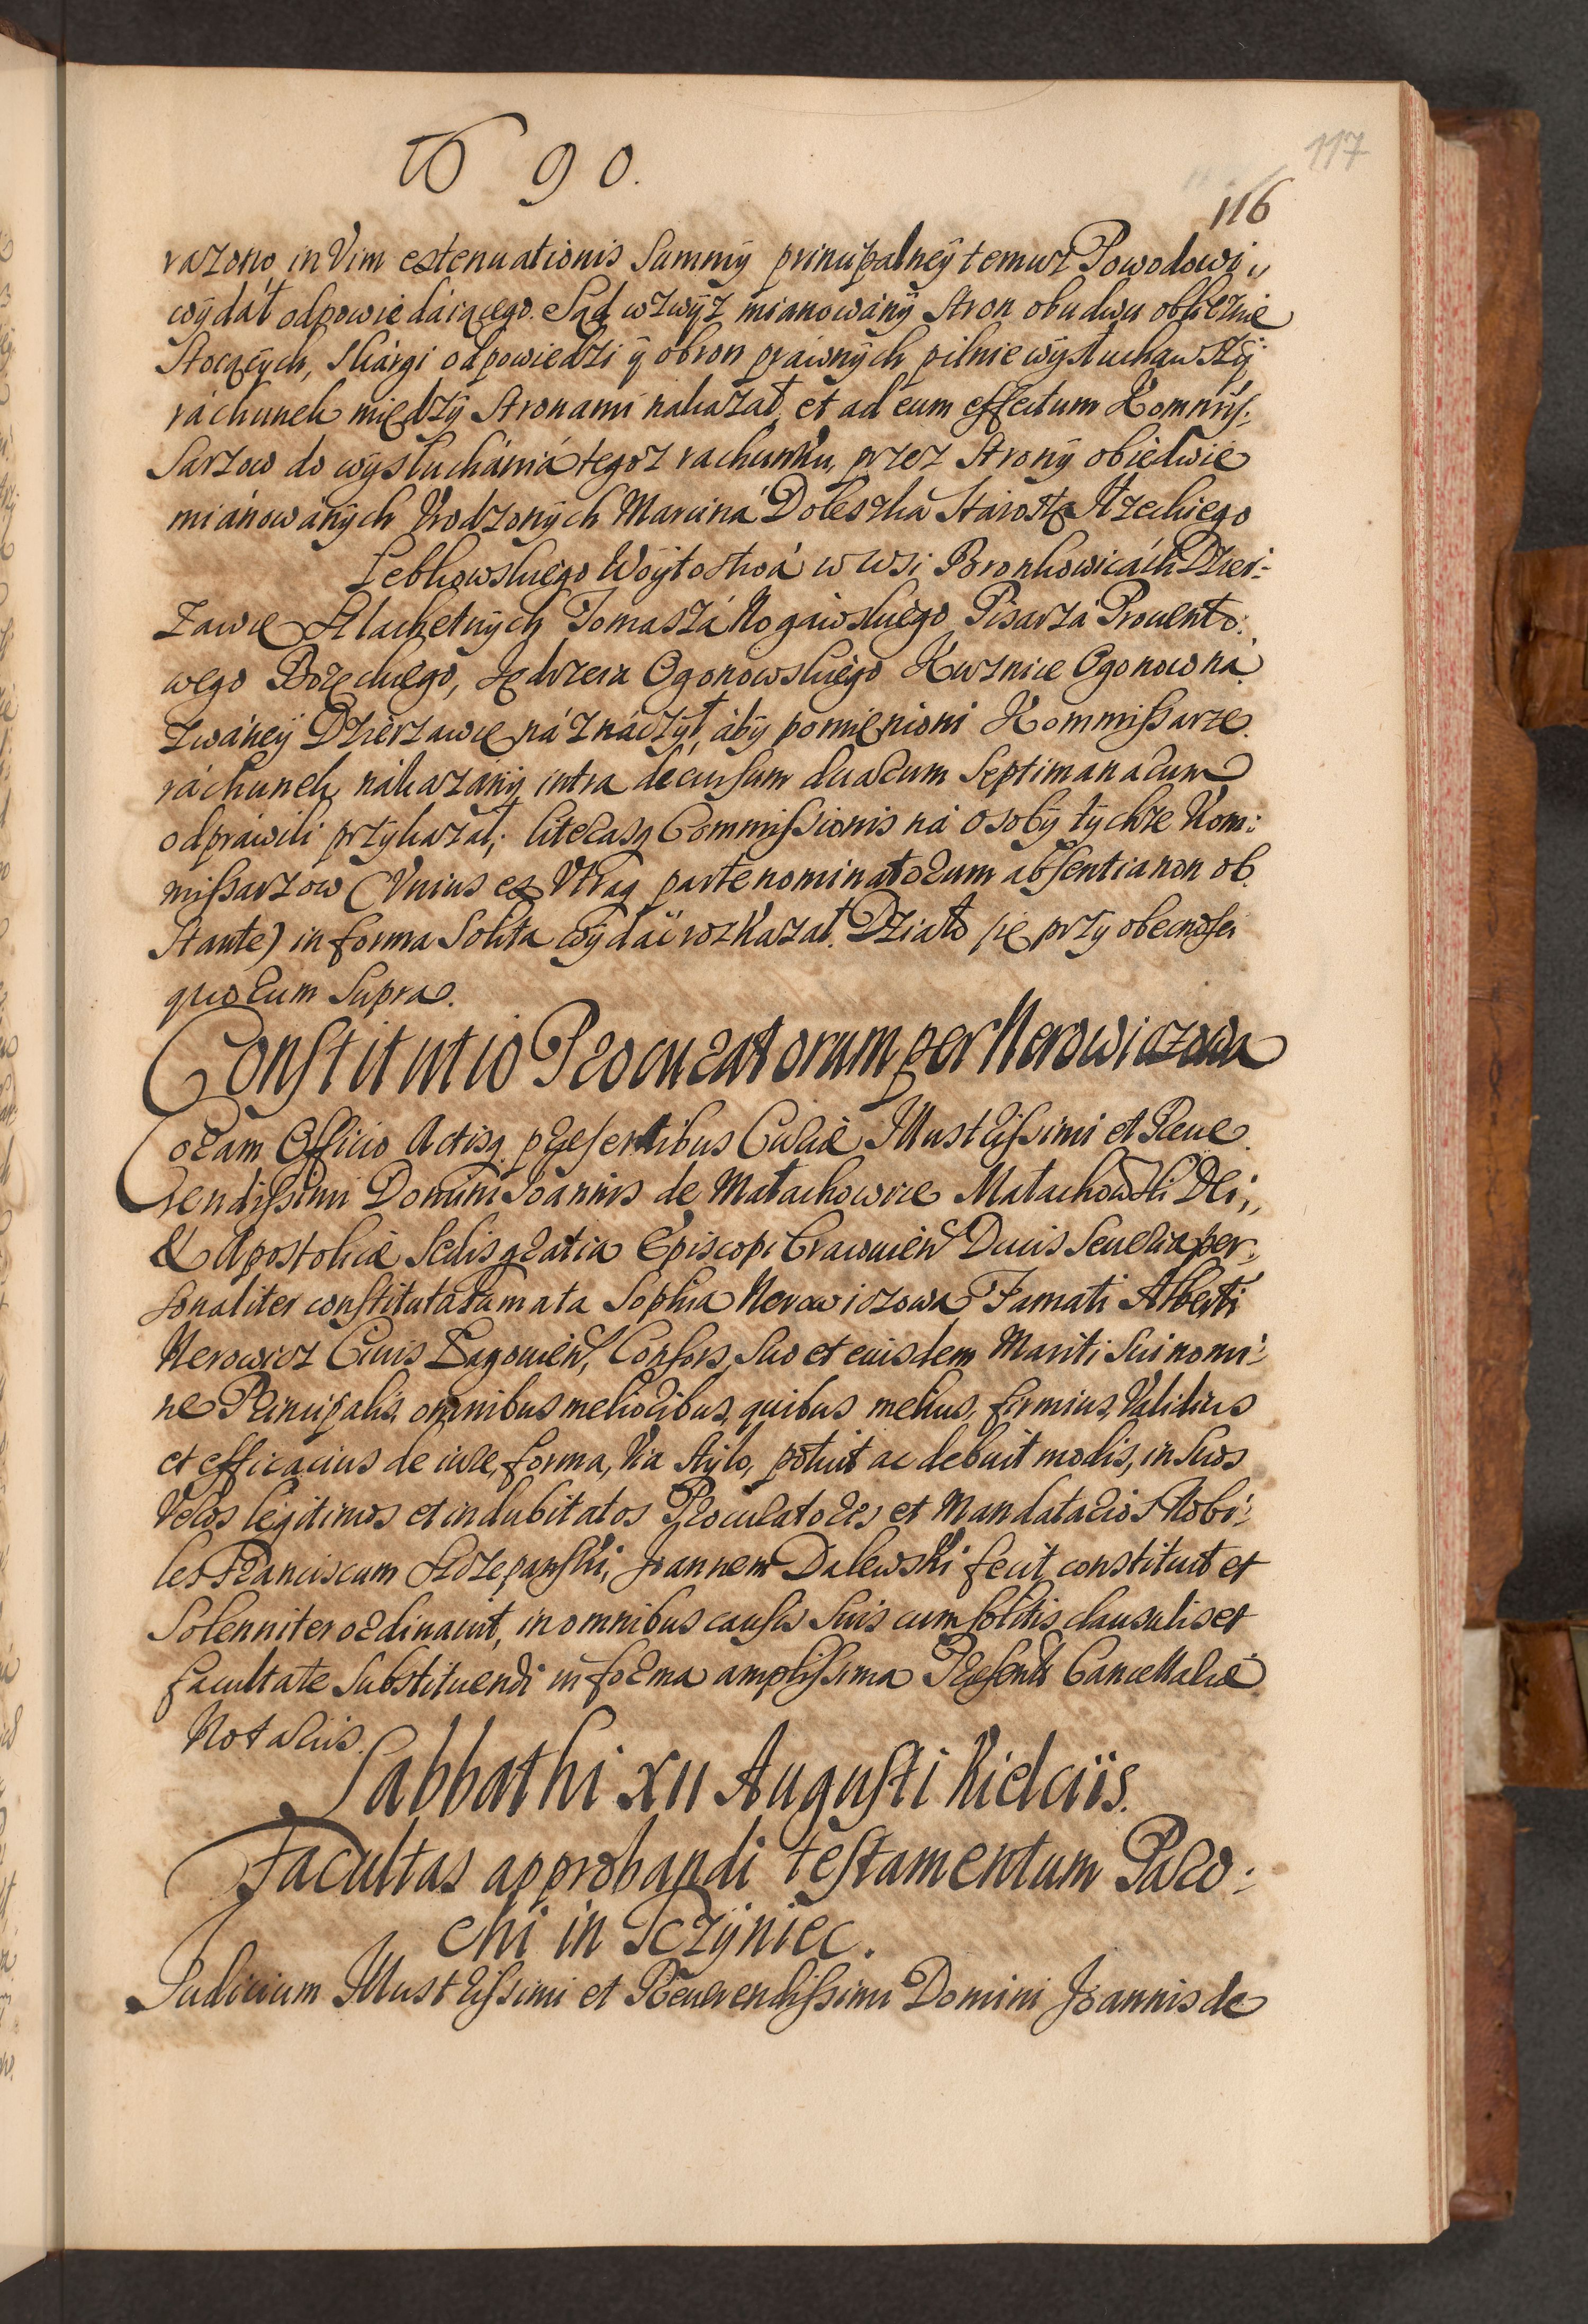 1690.
117
116
razono in Vim extenuationis Summÿ principalneÿ temuz Powodowi
wÿdát odpowiedáiącego. Sąd wzwÿz mianowánÿ Stron obudwu oblicznie
Stoeącÿch, Skárgi odpowiedzi ÿ obron práwnÿch pilnie wÿsłuchawszÿ
ráchunek międzÿ Stronami nakazał, et ad eum effectum Kommis:
sarzow do wÿsłuchániá tegoz rachunku, przez Stronÿ obiedwie
miánowánÿch Urodzonÿch Marciná Doleszka Starostę Rzeckiego
Lebkowskiego Woÿtostwá w wsi Boronkowicách Dzier:
zawcę Szlachetnÿch Tomaszá Rogáwskiego Pisarzá Prouento:
wego Bozęckiego, Jędrzeia Ogonowskiego Kuznice Ogonow ná
zwáneÿ Dzierzawcę náznáczÿł, ábÿ pomięnioni Kommissarze
ráchunek nákazánÿ intra decursum duarum Septimanarum
odpráwili przÿkazał; literasq Commissionis ná osobÿ tÿchze Kom:
missarzow (Vnius ex Vtraq parte nominatorum absentia non ob
stante) in forma Solita wÿdáć rozkazał. Działo się przÿ obecnosci
quorum Supra.
Constitutio Procuratorum per Nerowiczowa
Coram Officio Actisq. præsentibus Curiæ Illustrissimi et Reue
rendissimi Domini Joannis de Małachowice Małachowski Dei,
& Apostolicæ Sedis gratia Episcopi Cracouien Ducis Seueriæ per,
sonaliter constituta Famata Sophia Nerowiczowa Famati Alberti
Nerowicz Ciuis Łagouien, Consors, Suo et eiusdem Mariti Sui nomi:
ne Principalis, omnibus melioribus, quibus melius, firmius, Validius
et efficacius de iure, forma, Via Stÿlo, potuit ac debuit modis, in Suos
Veros legitimos et indubitatos Procuratores et Mandatarios Nobi:
les Franciscum Szczepanski, Joannem Dalewski fecit, constituit et
Solenniter ordinauit, in omnibus causis Suis cum solitis clausulis et
facultate Substituendi in forma amplissima Præsentib Cancellariæ
Notariis.
Sabbathi XII Augusti Kielciis.
Facultas approbandi testamentum Paro:
chi in Tczÿniec.
Judicium Illustrissimi et Reuerendissimi Domini Joannis de